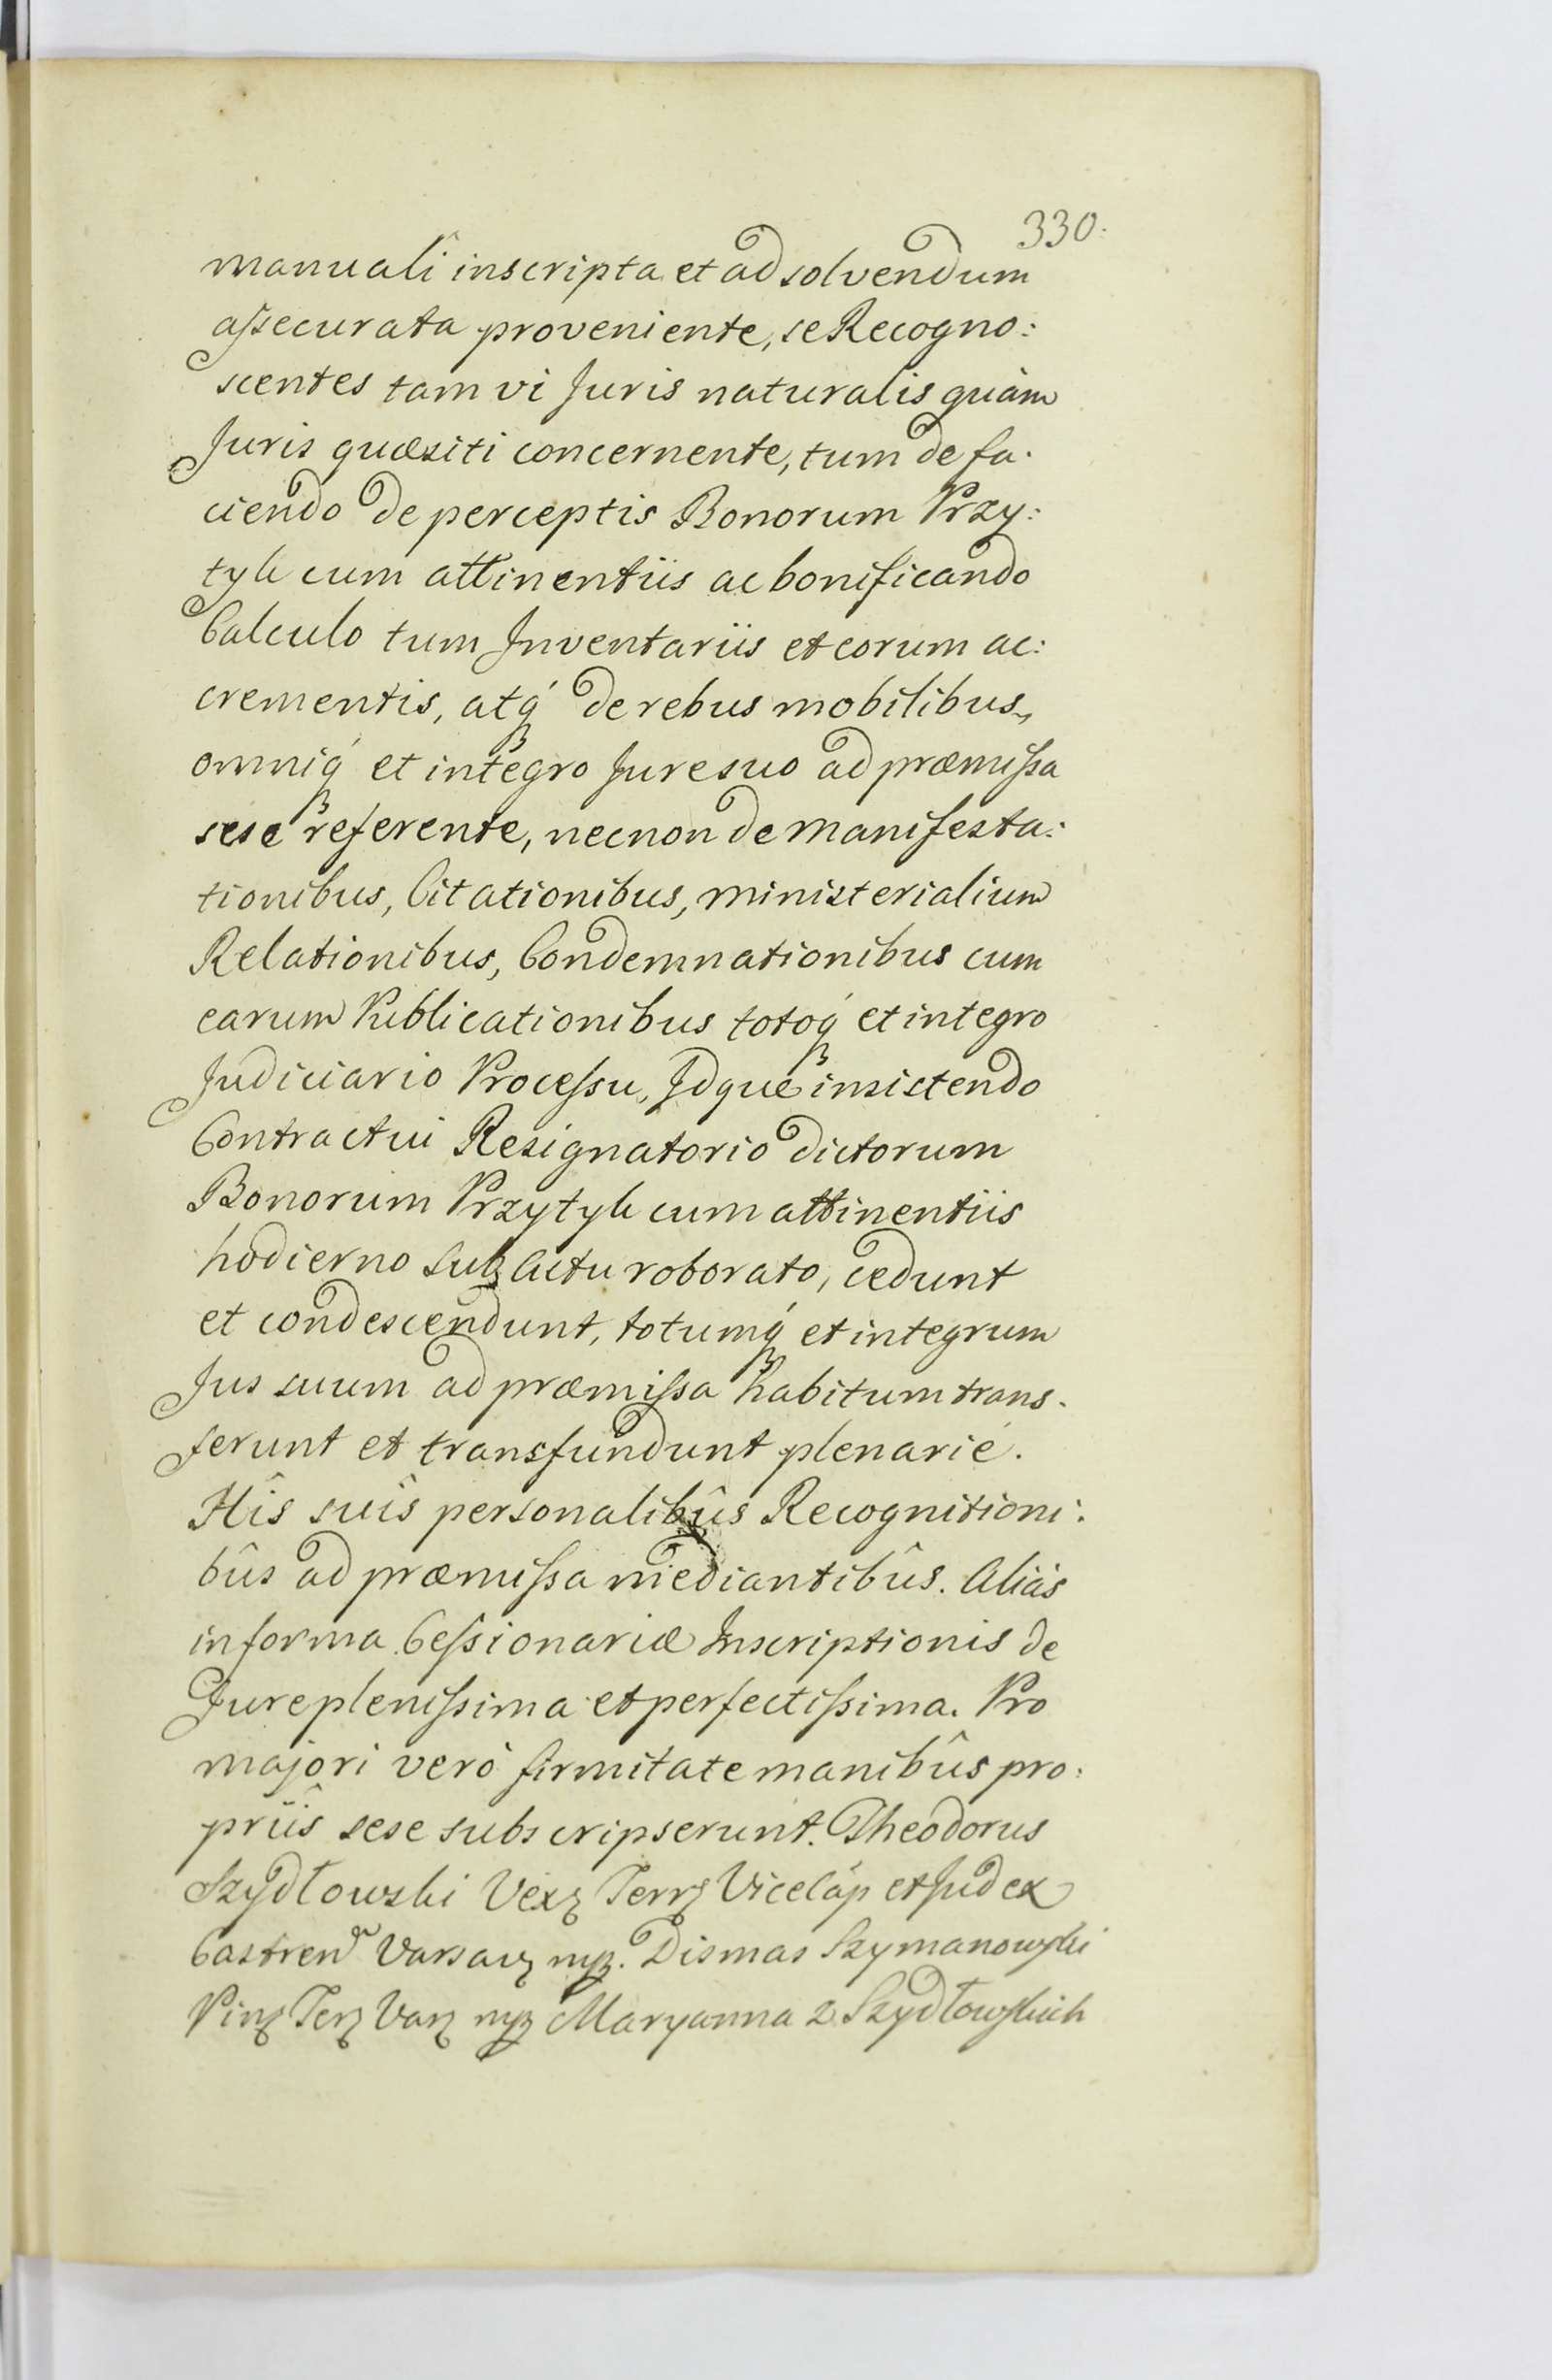 330.
manuali inscripta et ad solvendum
assecurata proveniente, se Recogno:
scentes tam vi Juris naturalis quàm
Juris quæsiti concernente, tum de fa.
ciendo de perceptis Bonorum Przy:
tyk cum attinentiis ac bonificando
Calculo tum Inventariis et eorum ac:
crementis, atq́ de rebus mobilibus,
omniq́ et integro Jure suo ad præmissa
sese referente, necnon de manifesta:
tionibus, Citationibus, ministerialium
Relationibus, Condemnationibus cum
earum Publicationibus totoq́ et integro
Judiciario Processu, Idque insistendo
Contractui Resignatorio dictorum
Bonorum Przytyk cum attinentiis
hodierno sub actu roborato, cedunt
et condescendunt, totumq́ et integrum
Jus suum ad præmissa habitum trans.
ferunt et transfundunt plenarié.
Hîs suîs personalibûs Recognitioni:
bûs ad præmissa mediantibûs. Aliàs
in forma Cessionariæ Inscriptionis de
Jure plenissima et perfectissima. Pro
majori verò firmitate manibûs pro:
priîs sese subscripserunt. Theodorus
Szydłowski Vexꝫ Terrꝫ Vicecáp et Judex
Castren Varsavꝫ mpꝫ. Dismas Szymanowski
Pinꝫ Terꝫ Varꝫ mpꝫ Maryanna z Szydłowskich